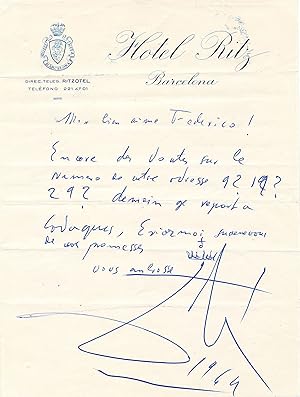 Hotel Ritz
Barcelona
DIREC. TELEG. RITZOTEL
TELÉFONO 221 47 01
Mon bien aimé Federico!
Encore des doutes sur le
numero de votre adresse 9? 19?
29? demain je repart a
Cadaques,
de vos promesses
vous
1964